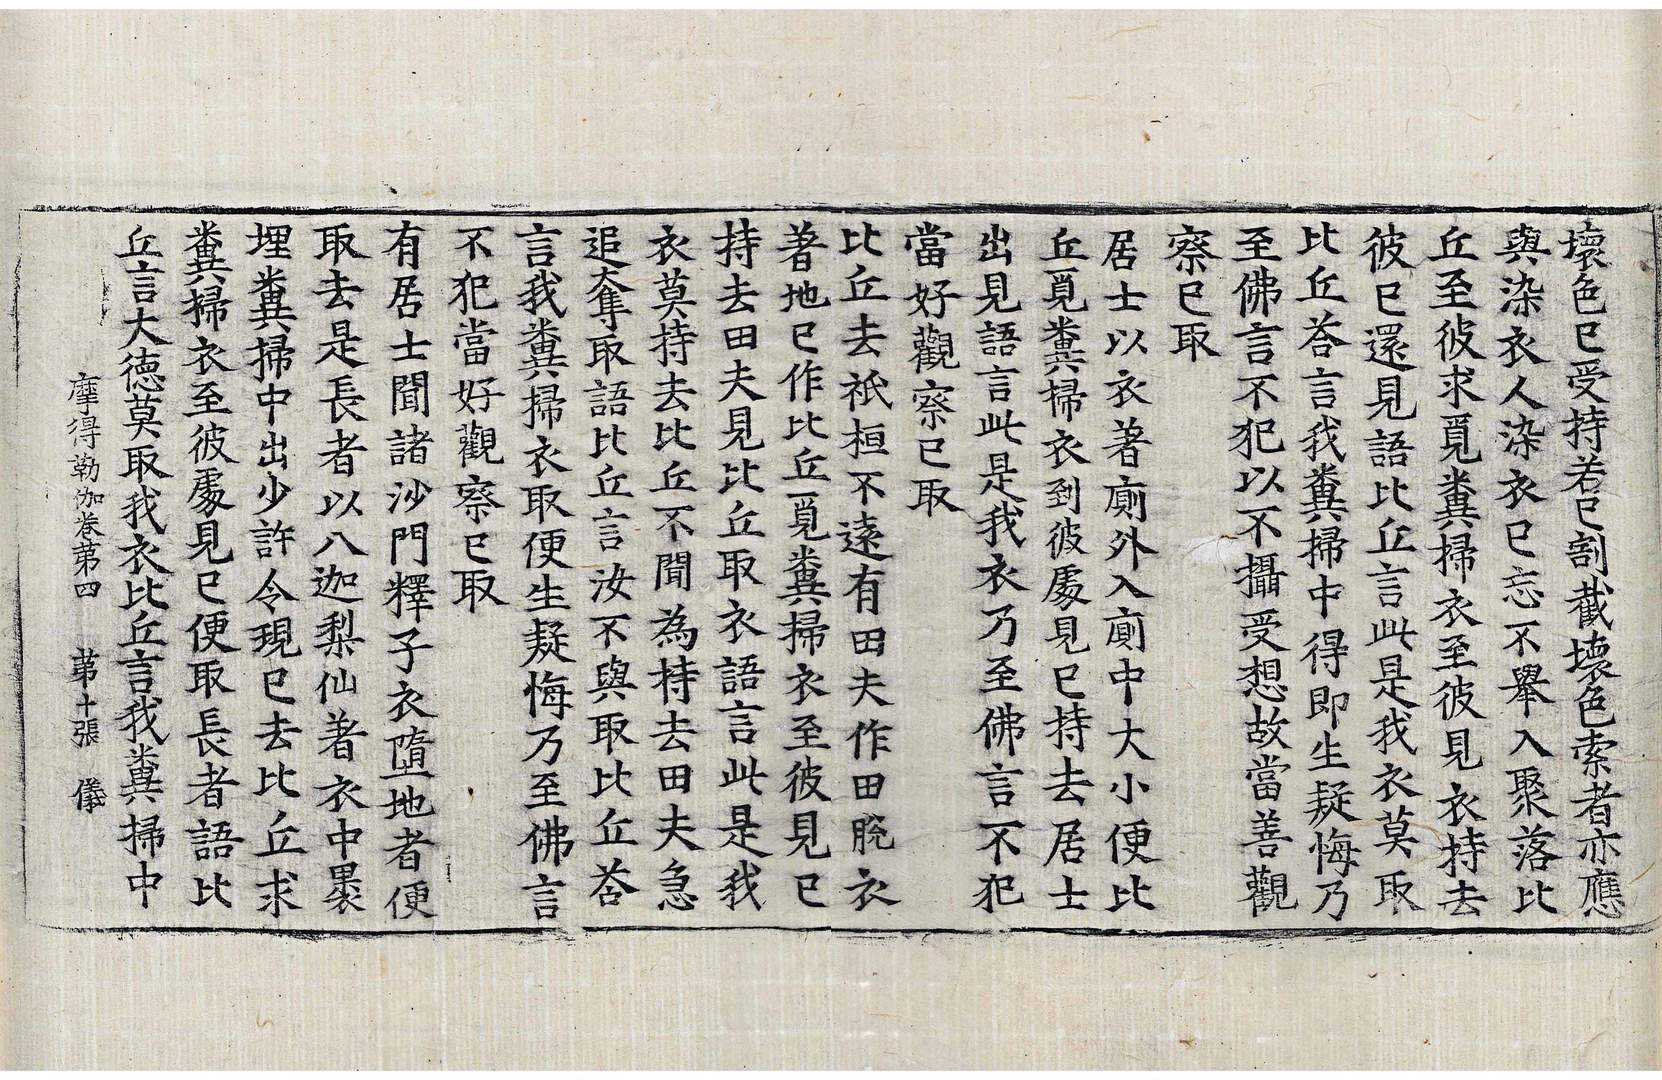 壞色已受持若已割截壞色索者亦應
與染衣人染衣已忘不舉入聚落比
丘至彼求覓糞掃衣至彼見衣持去
彼已還見語比丘言此是我衣莫取
比丘荅言我糞掃中得即生疑悔乃
至佛言不犯以不攝受想故當善觀
察已取
居士以衣著廁外入廁中大小便比
丘覓糞掃衣到彼處見已持去居士
出見語言此是我衣乃至佛言不犯
當好觀察已取
比丘去祇桓不遠有田夫作田脫衣
著地已作比丘覓糞掃衣至彼見已
持去田夫見比丘取衣語言此是我
衣莫持去比丘不聞為持去田夫急
追奪取語比丘言汝不與取比丘荅
言我糞掃衣取便生疑悔乃至佛言
不犯當好觀察已取
有居士聞諸沙門釋子衣墮地者便
取去是長者以八迦梨仙著衣中褁
埋糞掃中出少許令現已去比丘求
糞掃衣至彼處見已便取長者語比
丘言大德莫取我衣比丘言我糞掃中
摩得勒伽卷第四　第十張　儀